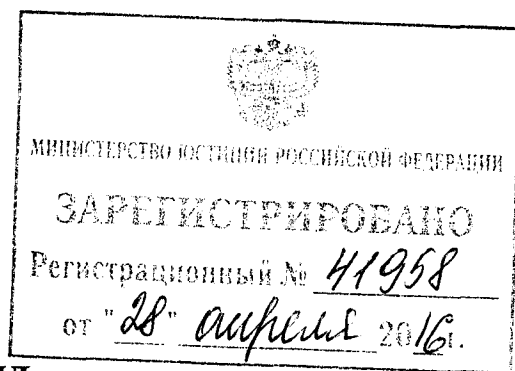 МИНИСТЕРСТВО ЮСТИЦИИ РОССИЙСКОЙ ФЕДЕРАЦИИ
ЗАРЕГИСТРИРОВАНО
Регистрационный № 41958
от "28" апреля 2016г.